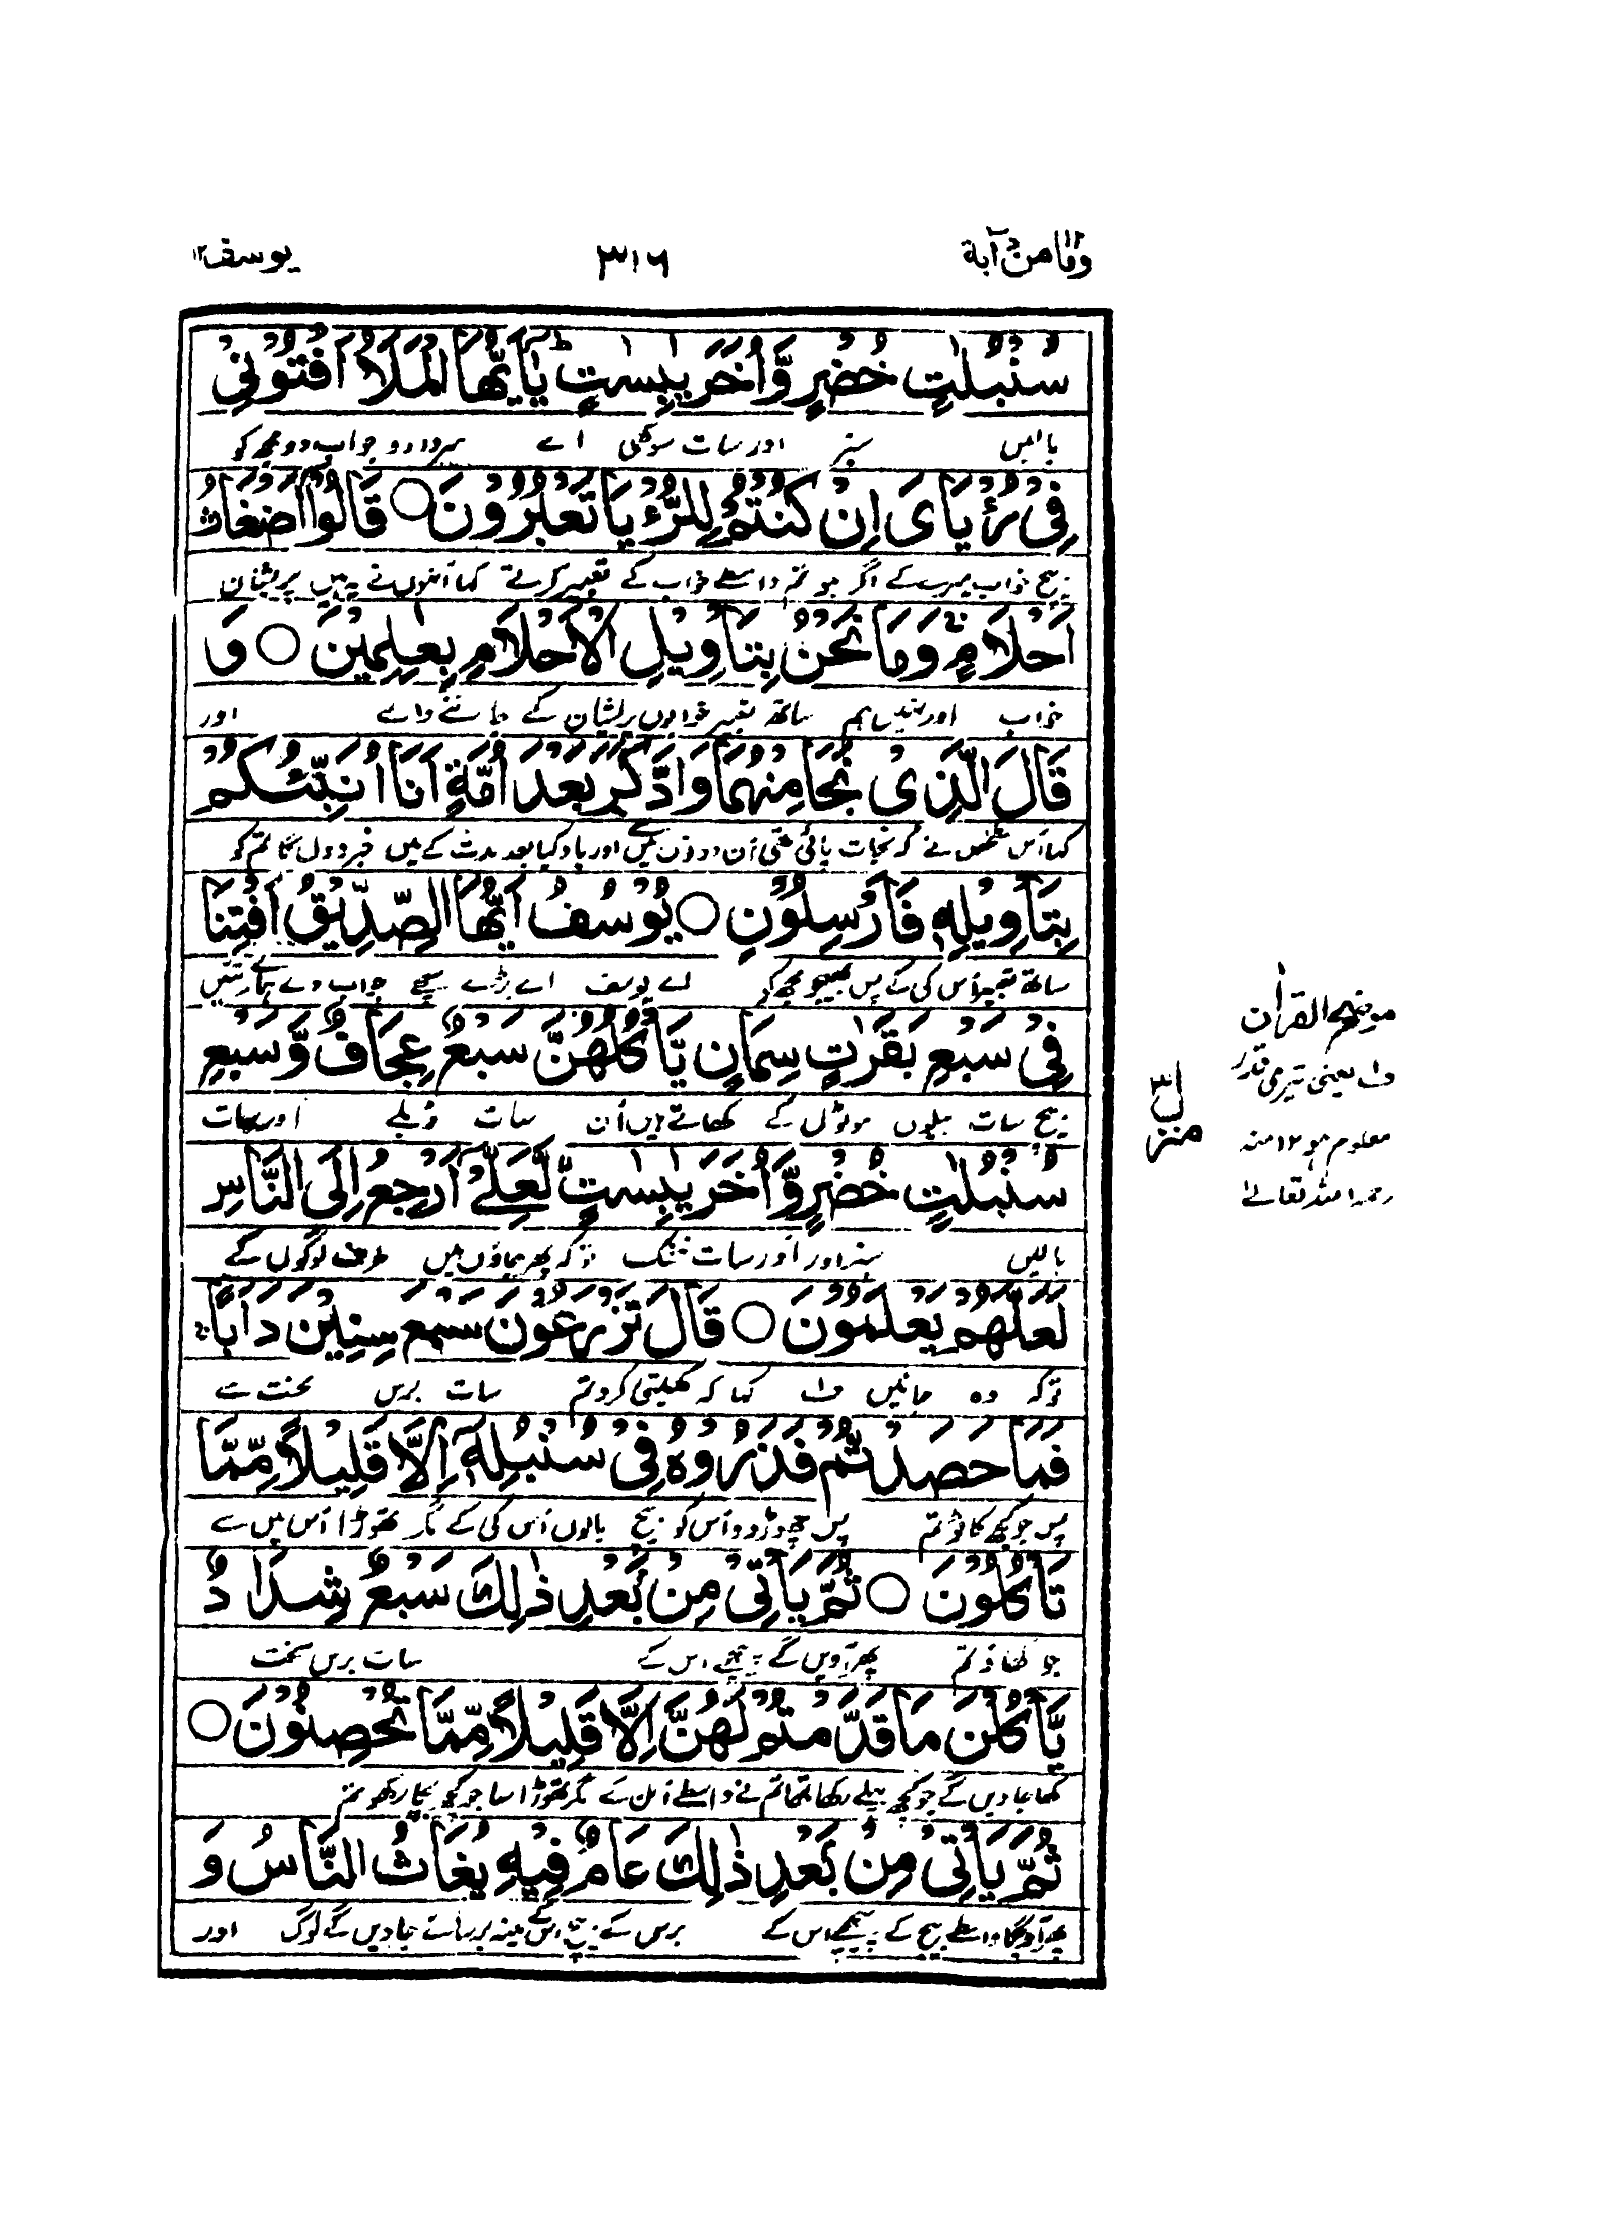 وما من دابة ١٢
٣١٦
يوسف ١٢
سُنۢبُلٰتٍ خُضْرٍ وَّاُخَرَ يٰبِسٰتٍ ؕ يٰۤاَيُّهَا الْمَلَاُ اَفْتُوْنِيْ
بالیں سبز اور سات سوکھی اے سردارو جواب دو مجھ کو
فِيْ رُءْيَايَ اِنْ كُنْتُمْ لِلرُّءْيَا تَعْبُرُوْنَ ○ قَالُوْۤا اَضْغَاثُ
بیچ خواب میرے کے اگر ہو تم واسطے خواب کے تعبیر کرتے کہا اُنہوں نے یہ ہیں پریشان
اَحْلَامٍ ۚ وَمَا نَحْنُ بِتَاْوِيْلِ الْاَحْلَامِ بِعٰلِمِيْنَ ○ وَ
خواب اور نہیں ہم ساتھ تعبیر خوابوں پریشان کے جاننے والے اور
قَالَ الَّذِيْ نَجَا مِنْهُمَا وَادَّكَرَ بَعْدَ اُمَّةٍ اَنَا اُنَبِّئُكُمْ
کہا اُس شخص نے کہ نجات پائی تھی اُن دونوں میں سے اور یاد کیا بعد مدت کے میں خبر دوں گا تم کو
بِتَاْوِيْلِهٖ فَاَرْسِلُوْنِ ○ يُوْسُفُ اَيُّهَا الصِّدِّيْقُ اَفْتِنَا
ساتھ تعبیر اُس کی کے پس بھیجو مجھ کو اے یوسف اے بڑے سچے جواب دے ہمارے تئیں
فِيْ سَبْعِ بَقَرٰتٍ سِمَانٍ يَّاْكُلُهُنَّ سَبْعٌ عِجَافٌ وَّسَبْعِ
بیچ سات بیلوں موٹوں کے کھاتے ہیں اُن سات دُبلے اور سات
سُنۢبُلٰتٍ خُضْرٍ وَّاُخَرَ يٰبِسٰتٍ ۙ لَّعَلِّيْۤ اَرْجِعُ اِلَى النَّاسِ
بالیں سبز اور اور سات خشک تو کہ پھر جاؤں میں طرف لوگوں کے
لَعَلَّهُمْ يَعْلَمُوْنَ ○ قَالَ تَزْرَعُوْنَ سَبْعَ سِنِيْنَ دَاَبًا ۚ
تو کہ وہ جانیں ف۱ کہا کہ کھیتی کرو تم سات برس محنت سے
فَمَا حَصَدْتُّمْ فَذَرُوْهُ فِيْ سُنۢبُلِهٖۤ اِلَّا قَلِيْلًا مِّمَّا
پس جو کچھ کاٹو تم پس چھوڑ دو اُس کو بیچ بالوں اُس کی کے مگر تھوڑا اُس میں سے
تَاْكُلُوْنَ ○ ثُمَّ يَاْتِيْ مِنْۢ بَعْدِ ذٰلِكَ سَبْعٌ شِدَادٌ
جو کھاؤ تم پھر آویں گے پیچھے اس کے سات برس سخت
يَّاْكُلْنَ مَا قَدَّمْتُمْ لَهُنَّ اِلَّا قَلِيْلًا مِّمَّا تُحْصِنُوْنَ ○
کھا جاویں گے جو کچھ پہلے رکھا تھا تم نے واسطے اُن کے مگر تھوڑا سا جو کچھ بچا رکھو تم
ثُمَّ يَاْتِيْ مِنْۢ بَعْدِ ذٰلِكَ عَامٌ فِيْهِ يُغَاثُ النَّاسُ وَ
پھر آوے گا پیچھے اس کے برس کے بیچ اس کے مینہ برسائے جاویں گے لوگ اور
منزل ٣
موضح القرآن
ف۱ یعنی تیری قدر
معلوم ہو ۱۲ منہ
رحمہ اللہ تعالےٰ